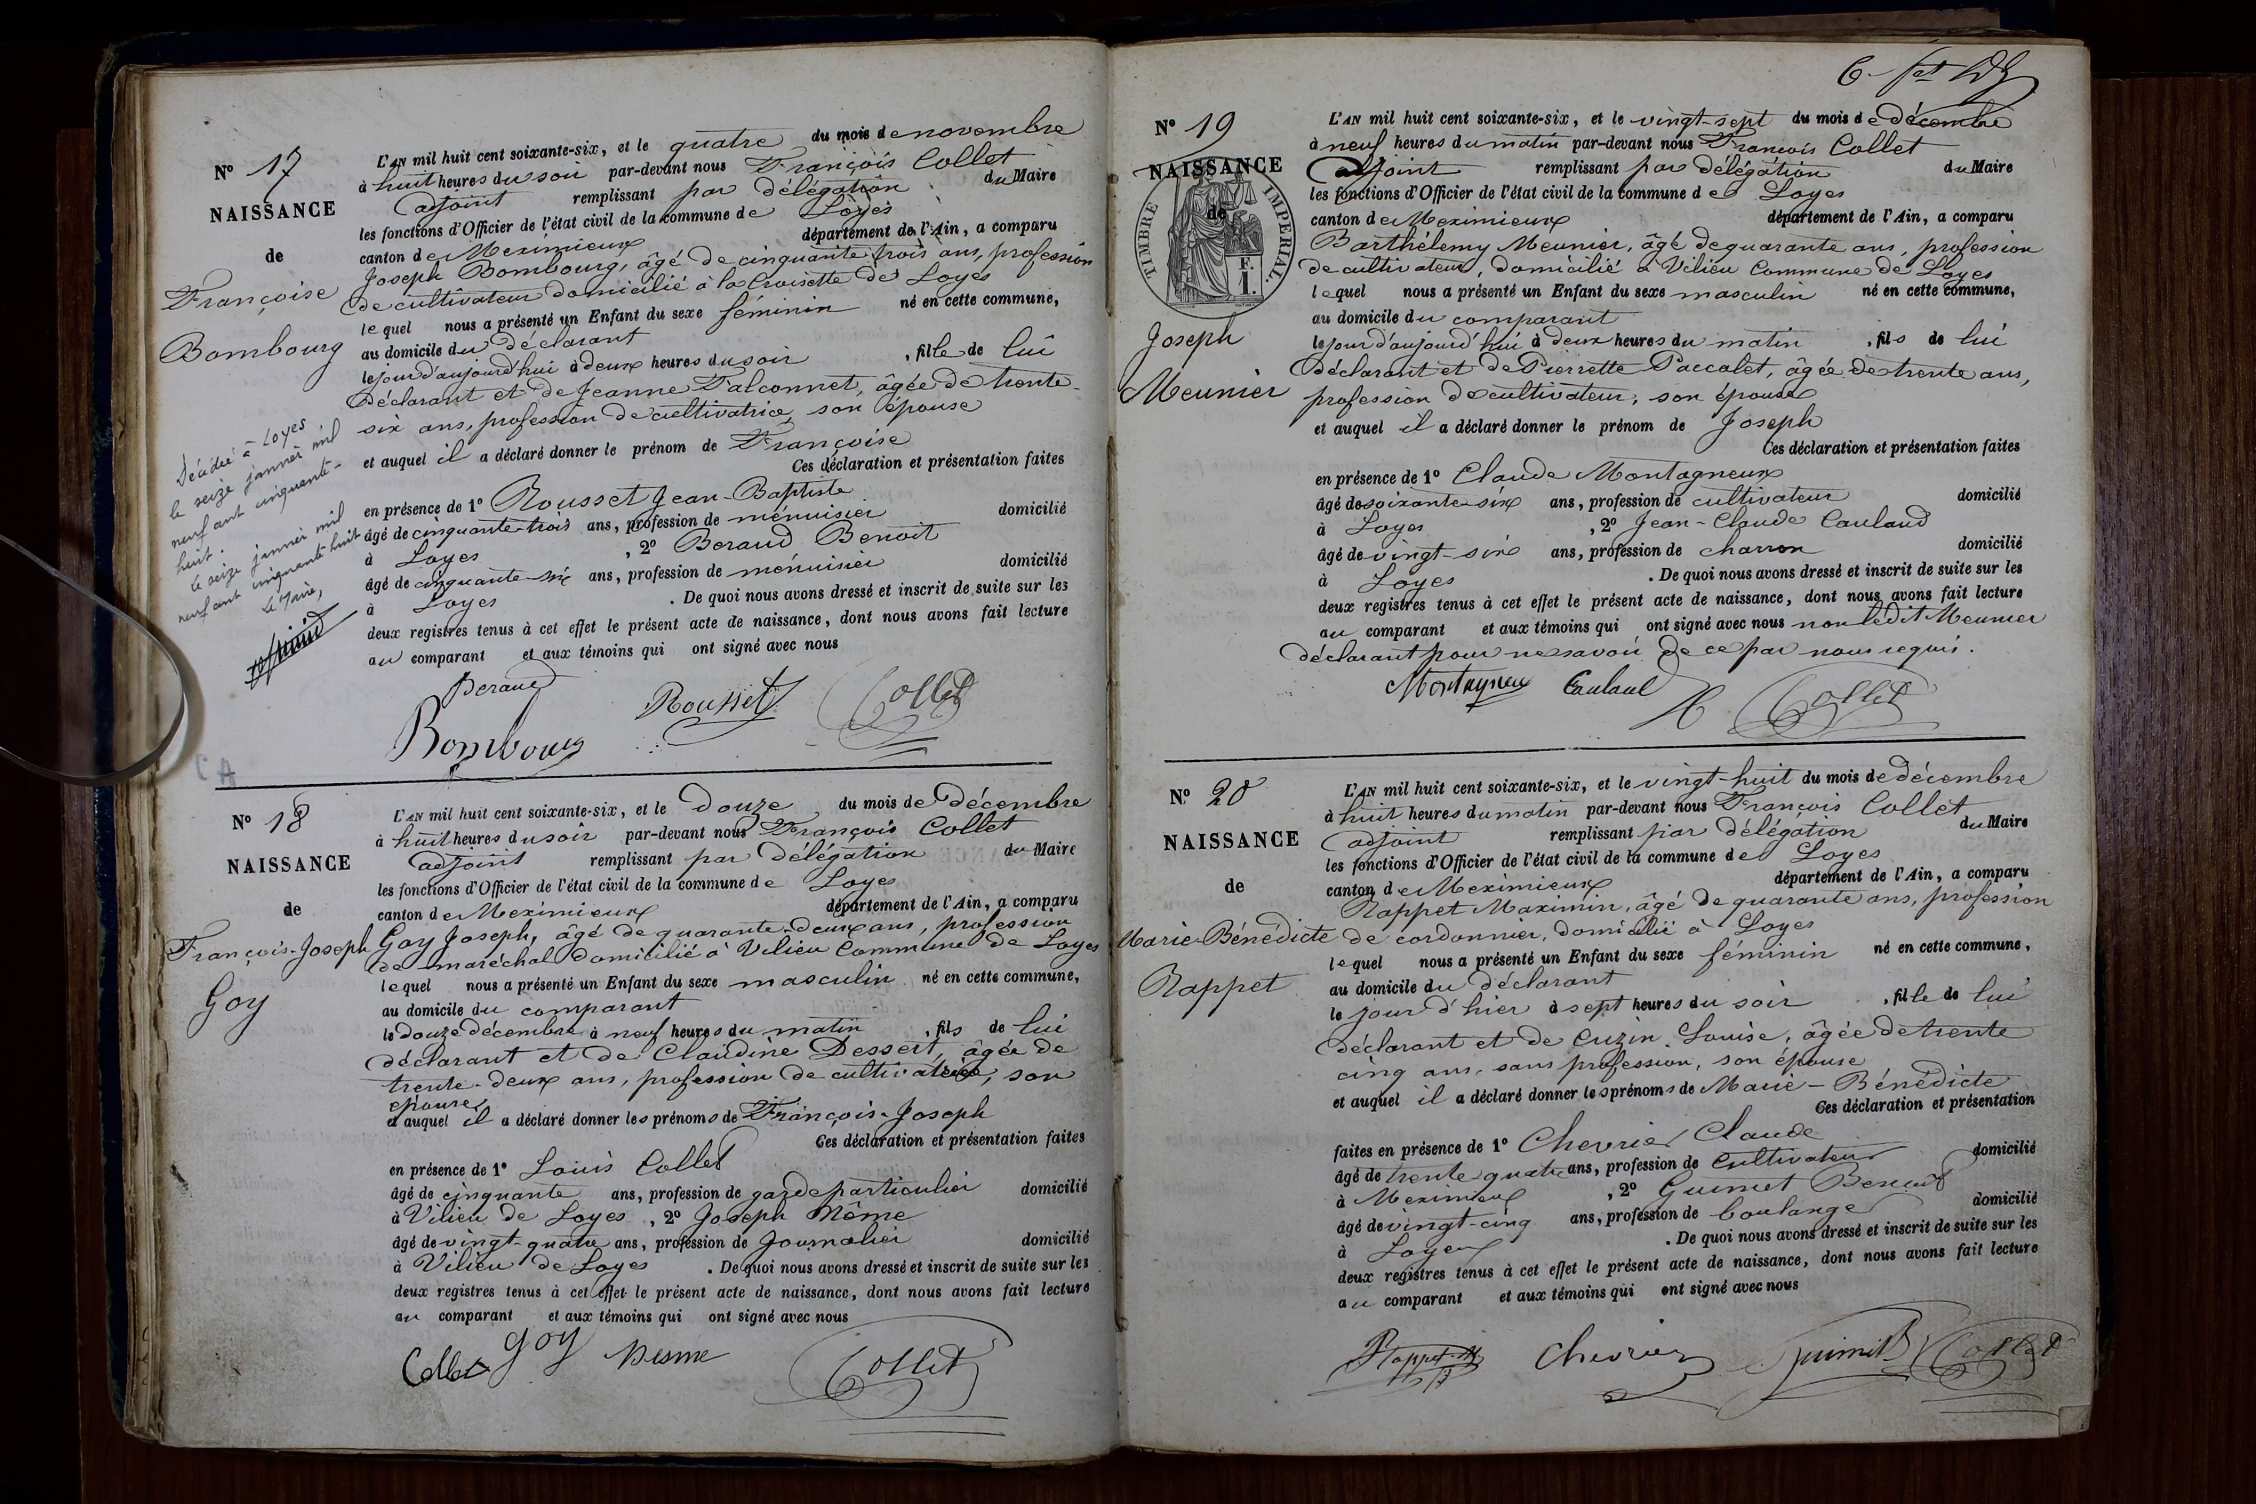 N° 17
NAISSANCE
de
Françoise
Bombourg
Décédée à Loyes
le seize janvier mil
neuf cent cinquante-
huit.
le seize janvier mil
neuf cent cinquante huit
Le Maire,
L'AN mil huit cent soixante-six, et le quatre du mois de novembre
à huit heures du soir par-devant nous François Collet
adjoint remplissant par délégation du Maire
les fonctions d'Officier de l'état civil de la commune de Loyes
canton de Meximieux département de l'Ain, a comparu
Joseph Bombourg, âgé de cinquante trois ans, profession
de cultivateur domicilié à la Croisette de Loyes
lequel nous a présenté un Enfant du sexe féminin né en cette commune,
au domicile du déclarant
le jour d'aujourd'hui à deux heures du soir, fille de lui
déclarant et de Jeanne Falconnet, âgée de trente-
six ans, profession de cultivatrice, son épouse
et auquel il a déclaré donner le prénom de Françoise
Ces déclaration et présentation faites
en présence de 1° Rousset Jean-Baptiste
âgé de cinquante-trois ans, profession de ménuisier domicilié
à Loyes, 2° Beraud Benoit
âgé de cinquante-six ans, profession de ménuisier domicilié
à Loyes. De quoi nous avons dressé et inscrit de suite sur les
deux registres tenus à cet effet le présent acte de naissance, dont nous avons fait lecture
au comparant et aux témoins qui ont signé avec nous
Beraud
Rousset
Collet
Bombourg
N° 18
NAISSANCE
de
François-Joseph
Goy
L'AN mil huit cent soixante-six, et le douze du mois de Décembre
à huit heures du soir par-devant nous François Collet
adjoint remplissant par délégation du Maire
les fonctions d'Officier de l'état civil de la commune de Loyes
canton de Meximieux département de l'Ain, a comparu
Goy Joseph, âgé de quarante-deux ans, profession
de maréchal domicilié à Vilieu Commune de Loyes
lequel nous a présenté un Enfant du sexe masculin né en cette commune,
au domicile du comparant
le douze décembre à neuf heures du matin, fils de lui
déclarant et de Claudine Dessert, âgée de
trente-deux ans, profession de cultivatrice, son
épouse
et auquel il a déclaré donner les prénoms de François-Joseph
Ces déclaration et présentation faites
en présence de 1° Louis Collet
âgé de cinquante ans, profession de garde particulier domicilié
à Vilieu de Loyes, 2° Joseph Même
âgé de vingt-quatre ans, profession de Journalier domicilié
à Vilieu de Loyes. De quoi nous avons dressé et inscrit de suite sur les
deux registres tenus à cet effet le présent acte de naissance, dont nous avons fait lecture
au comparant et aux témoins qui ont signé avec nous
Collet Goy Mesme Collet
N° 19
NAISSANCE
de
TIMBRE IMPERIAL.
1 F.
Joseph
Meunier
L'AN mil huit cent soixante-six, et le vingt-sept du mois de décembre
à neuf heures du matin par-devant nous François Collet
adjoint remplissant par délégation du Maire
les fonctions d'Officier de l'état civil de la commune de Loyes
canton de Meximieux département de l'Ain, a comparu
Barthélemy Meunier, âgé de quarante ans, profession
de cultivateur, domicilié à Vilieu Commune de Loyes
lequel nous a présenté un Enfant du sexe masculin né en cette commune,
au domicile du comparant
le jour d'aujourd'hui à deux heures du matin, fils de lui
déclarant et de Pierrette Paccalet, âgée de trente ans,
profession de cultivateur, son épouse
et auquel il a déclaré donner le prénom de Joseph
Ces déclaration et présentation faites
en présence de 1° Claude Montagneux
âgé de soixante-six ans, profession de cultivateur domicilié
à Loyes, 2° Jean-Claude Caulaud
âgé de vingt-six ans, profession de charron domicilié
à Loyes. De quoi nous avons dressé et inscrit de suite sur les
deux registres tenus à cet effet le présent acte de naissance, dont nous avons fait lecture
au comparant et aux témoins qui ont signé avec nous non ledit Meunier
déclarant pour ne savoir de ce par nous requis.
Montagneux Caulaud Collet
N° 20
NAISSANCE
de
Marie-Bénédicte
Rappet
L'AN mil huit cent soixante-six, et le vingt-huit du mois de décembre
à huit heures du matin par-devant nous François Collet
adjoint remplissant par délégation du Maire
les fonctions d'Officier de l'état civil de la commune de Loyes
canton de Meximieux département de l'Ain, a comparu
Rappet Maximin, âgé de quarante ans, profession
de cordonnier, domicilié à Loyes
lequel nous a présenté un Enfant du sexe féminin né en cette commune,
au domicile du déclarant
le jour d'hier à sept heures du soir, fille de lui
déclarant et de Cuzin Louise, âgée de trente
cinq ans, sans profession, son épouse
et auquel il a déclaré donner les prénoms de Marie-Bénédicte
Ces déclaration et présentation
faites en présence de 1° Chevrier Claude
âgé de trente quatre ans, profession de Cultivateur domicilié
à Meximieux, 2° Guimet Benoit
âgé de vingt-cinq ans, profession de boulanger domicilié
à Loyes. De quoi nous avons dressé et inscrit de suite sur les
deux registres tenus à cet effet le présent acte de naissance, dont nous avons fait lecture
au comparant et aux témoins qui ont signé avec nous
Rappet M Chevrier Guimet B Collet